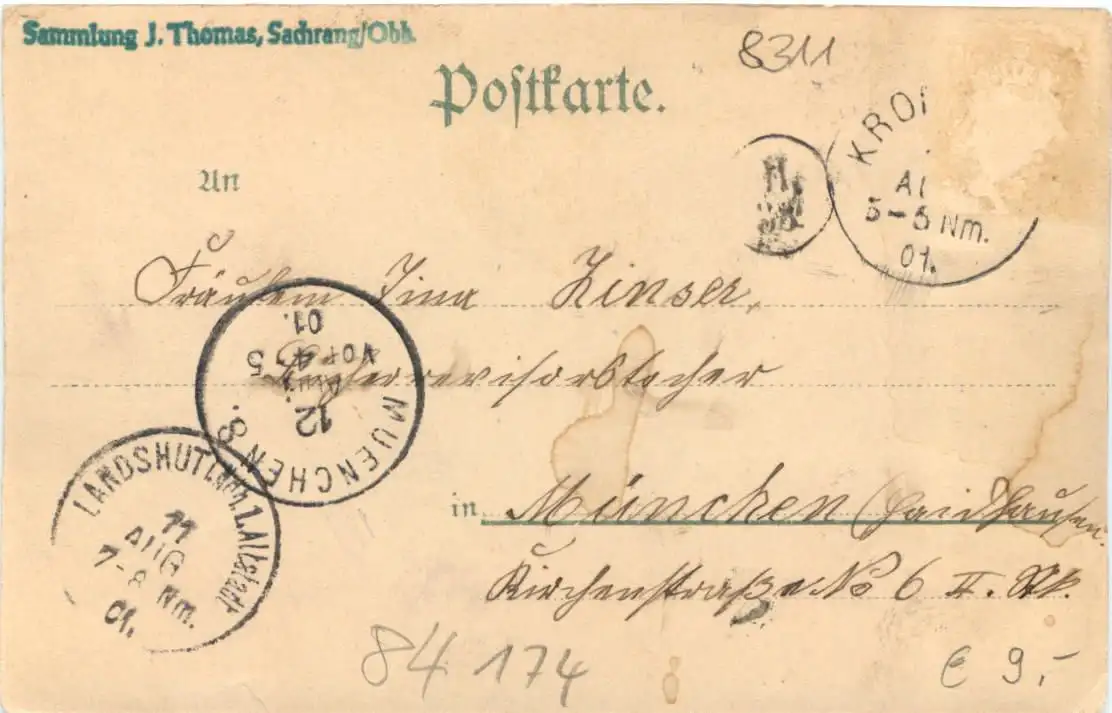 Sammlung J. Thomas, Sachrang/Obb.
8311
Postkarte.
KRO
A
5-6 Nm.
01.
An
Fräulein Tina Zinser,
revisorstocher
in München (Haidhausen.
Kirchenstraße No 6 II. Stk.
MUENCHEN 8.
12
AUG.
VOR 4-5
01.
LANDSHUT(Bay.)1.Altstadt
11
AUG
7-8 Nm.
01.
84 174
€ 9.-